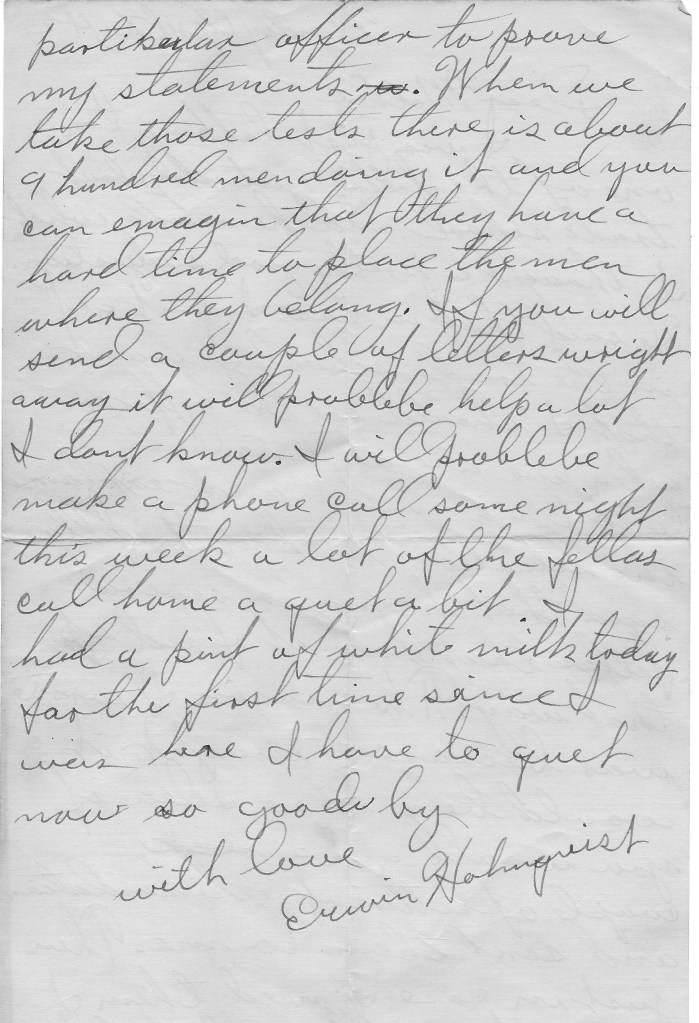 partikular officer to prove
my statements. When we
take those tests there is about
9 hundred men doing it and you
can emagin that they have a
hard time to place the men
where they belong. If you will
send a couple of letters wright
away it will problebe help a lot
I dont know. I will problebe
make a phone call some night
this week a lot of the fellas
call home a quet a bit. I
had a pint of white milk today
for the first time since I
was here I have to quet
now so good by
with love
Erwin Holmquist